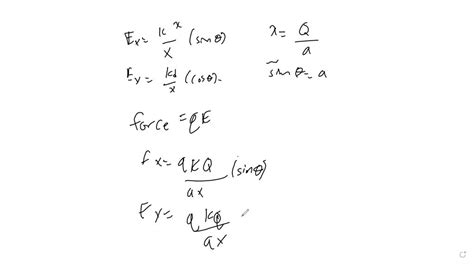 Ex = kλ/x (sinθ)
λ = Q/a
Ey = kλ/x (cosθ) -
sinθ = a
force = qE
fx = qKQ/ax (sinθ)
Fy = q kQ/ax